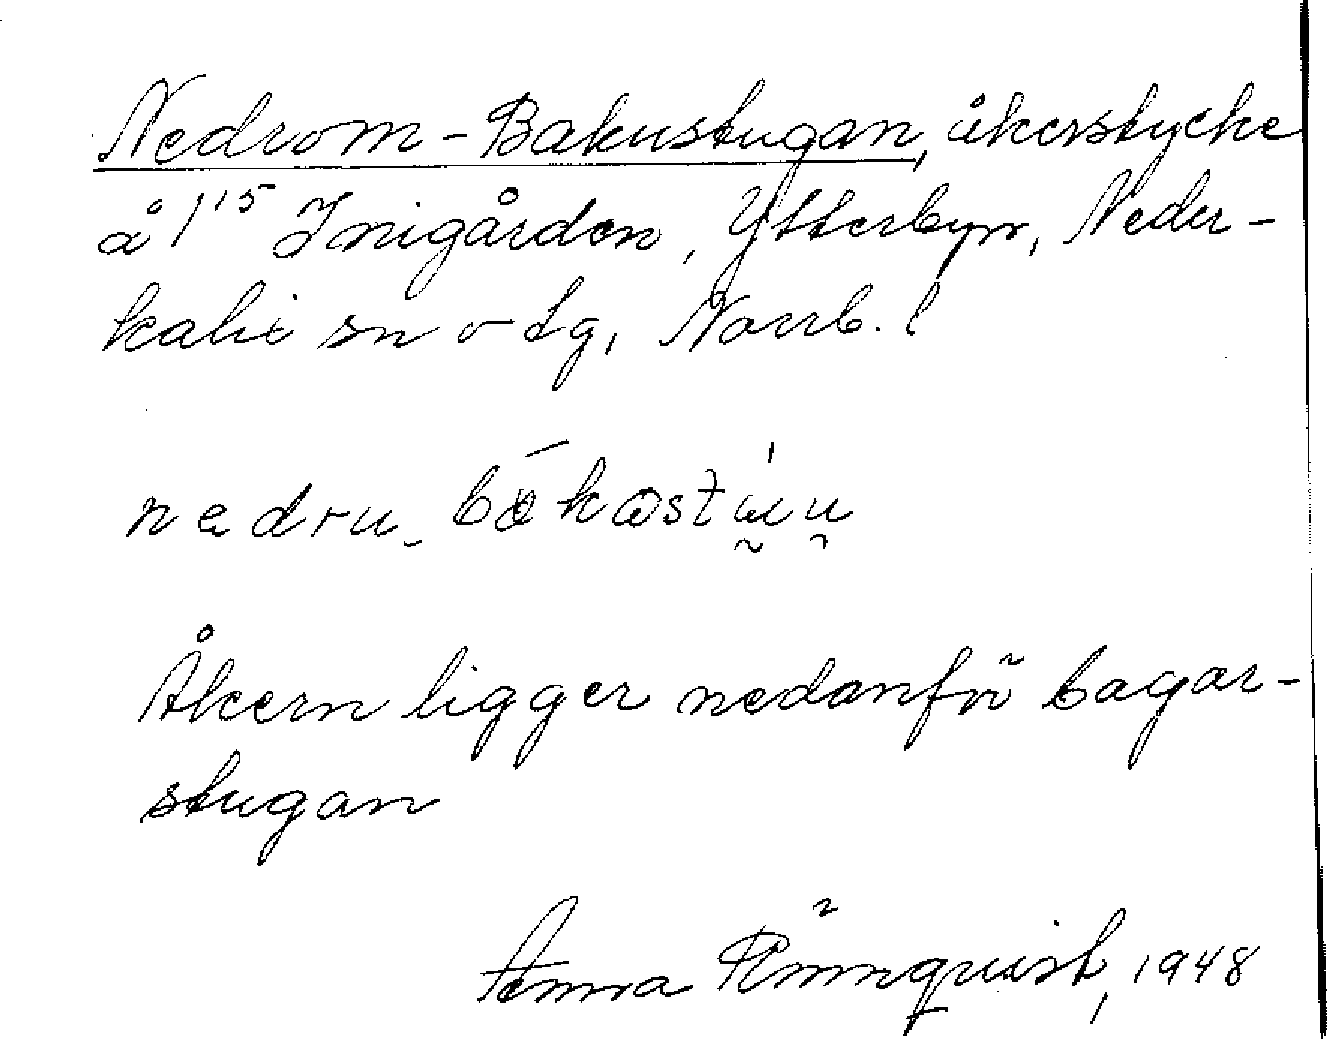 Nedrom-Bakustugan, åkerstycke
å 1¹⁵ Inigården, Ytterbyn, Neder-
kalix sn o lg, Norrb. l
nedru bákastúu
Åkern ligger nedanför bagar-
stugan
Anna Rönnquist, 1948